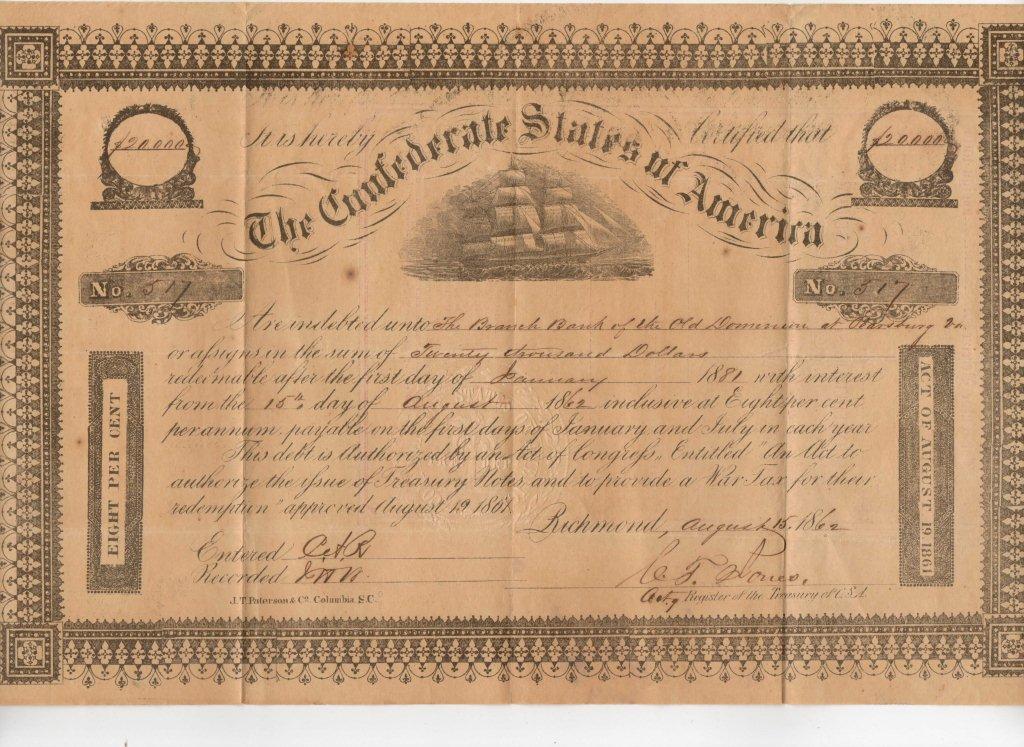 $20,000
It is hereby Certified that
$20,000
The Confederate States of America
No. 517
No. 517
Are indebted unto The Branch Bank of the Old Dominion at Pearisburg Va
or assigns in the sum of Twenty thousand Dollars
redeemable after the first day of January 1881 with interest
from the 15th day of August 1862 inclusive at Eight per cent
per annum, payable on the first days of January and July in each year
This debt is Authorized by an Act of Congress, Entitled "An Act to
authorize the issue of Treasury Notes, and to provide a War Tax for their
redemption" approved August 19 1861.
EIGHT PER CENT
ACT OF AUGUST 19 1861
Richmond, August 15, 1862
Entered
Recorded
C. T. Jones.
Actg Register of the Treasury of C.S.A.
J.T. Paterson & Co. Columbia S.C.